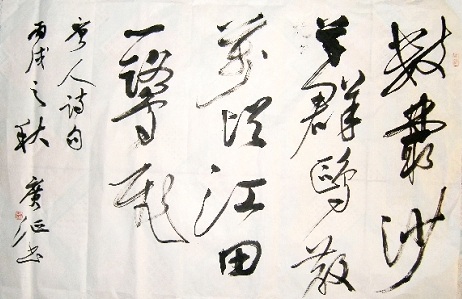 數叢沙
草群鷗散
萬頃江田
一鷺飛
唐人詩句
丙戌之秋 廣征书